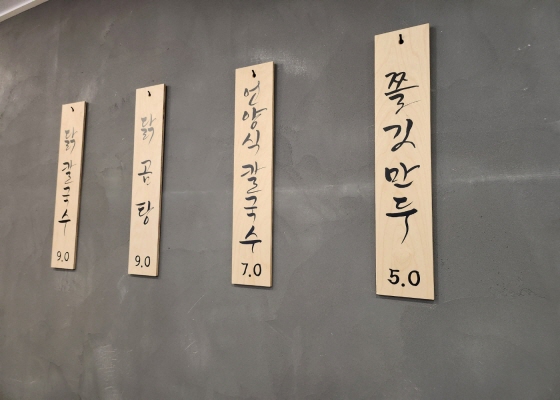 닭 칼국수
9.0
닭 곰탕
9.0
언양식 칼국수
7.0
쫄깃만두
5.0